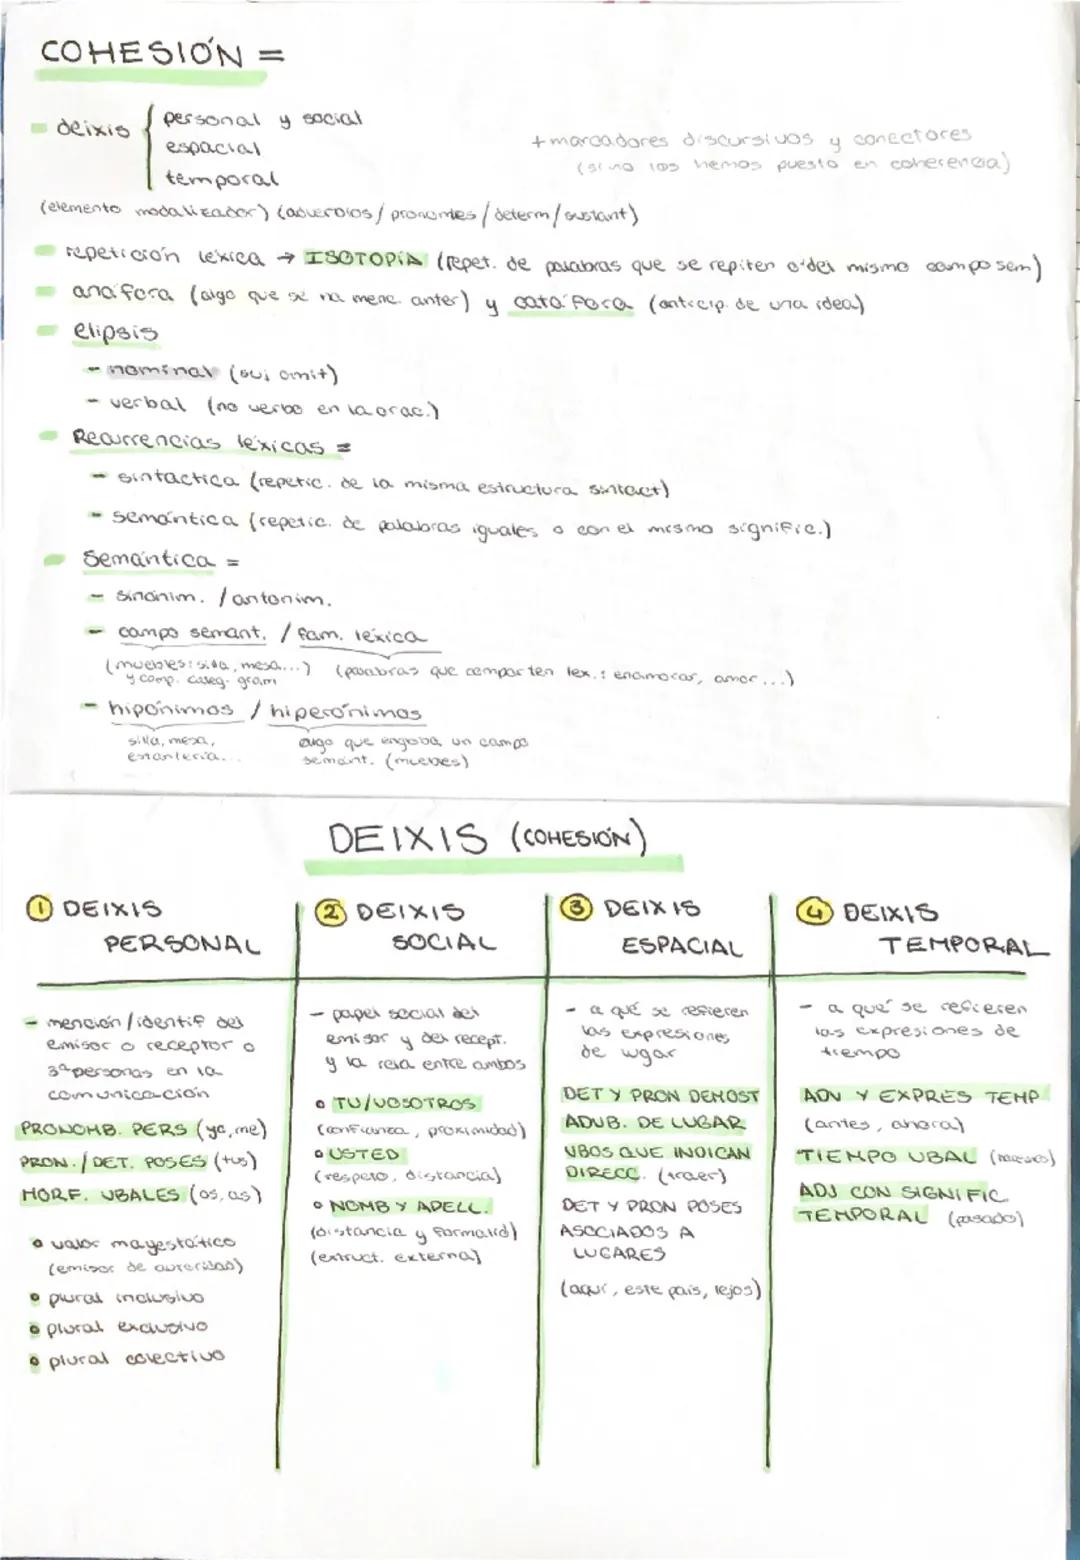 COHESIÓN =
deixis { personal y social
espacial
temporal
+ marcadores discursivos y conectores
(si no los hemos puesto en coherencia)
(elemento modalizador) (adverbios / pronombres / determ / sustant)
repetición léxica → ISOTOPÍA (repet. de palabras que se repiten o del mismo campo sem)
anáfora (algo que se ha menc. anter) y catáfora (anticip. de una idea)
elipsis
- nominal (suj omit)
- verbal (no verbo en la orac.)
Recurrencias léxicas =
- sintáctica (repetic. de la misma estructura sintact)
- semántica (repetic. de palabras iguales o con el mismo signific.)
Semántica =
- sinónim. / antonim.
- campo semant. / fam. léxica
(muebles: silla, mesa...) (palabras que comparten lex.: enamorar, amor...)
y comp. categ. gram
- hipónimos / hiperónimos
silla, mesa, algo que engloba un campo
estantería... semánt. (muebles)
DEIXIS (COHESIÓN)
① DEIXIS
PERSONAL
- mención / identif del
emisor o receptor o
3ª personas en la
comunicación
PRONOMB. PERS (yo, me)
PRON. / DET. POSES (tus)
MORF. VBALES (os, as)
• valor mayestático
(emisor de autoridad)
• plural inclusivo
• plural exclusivo
• plural colectivo
② DEIXIS
SOCIAL
- papel social del
emisor y del recept.
y la rela entre ambos
• TU/VOSOTROS
(confianza, proximidad)
• USTED
(respeto, distancia)
• NOMB Y APELL.
(distancia y formalid)
(estruct. externa)
③ DEIXIS
ESPACIAL
- a qué se refieren
las expresiones
de lugar
DET Y PRON DEMOST
ADVB. DE LUGAR
VBOS QUE INDICAN
DIRECC. (traer)
DET Y PRON POSES
ASOCIADOS A
LUGARES
(aquí, este país, lejos)
④ DEIXIS
TEMPORAL
- a qué se refieren
las expresiones de
tiempo
ADV Y EXPRES TEMP
(antes, ahora)
TIEMPO VBAL
ADJ CON SIGNIFIC
TEMPORAL (pasado)